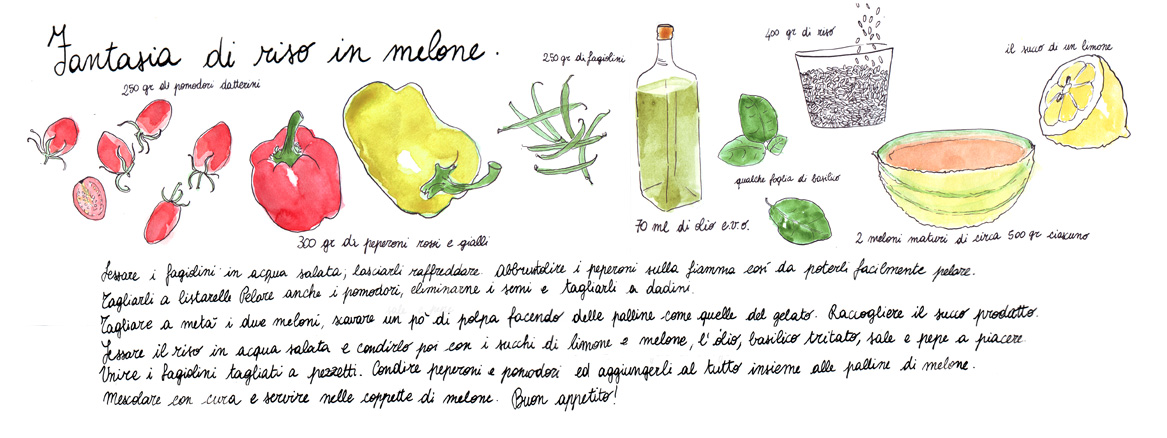 Fantasia di riso in melone.
250 gr di pomodori datterini
250 gr di fagiolini
400 gr di riso
il succo di un limone
qualche foglia di basilico
300 gr di peperoni rossi e gialli
70 ml di olio e.v.o.
2 meloni maturi di circa 500 gr ciascuno
Lessare i fagiolini in acqua salata, lasciarli raffreddare. Abbrustolire i peperoni sulla fiamma così da poterli facilmente pelare.
Tagliarli a listarelle Pelare anche i pomodori, eliminarne i semi e tagliarli a dadini.
Tagliare a metà i due meloni, scavare un pò di polpa facendo delle palline come quelle del gelato. Raccogliere il succo prodotto.
Lessare il riso in acqua salata e condirlo poi con i succhi di limone e melone, l'olio, basilico tritato, sale e pepe a piacere
Unire i fagiolini tagliati a pezzetti. Condire peperoni e pomodori ed aggiungerli al tutto insieme alle palline di melone.
Mescolare con cura e servire nelle coppette di melone. Buon appetito!